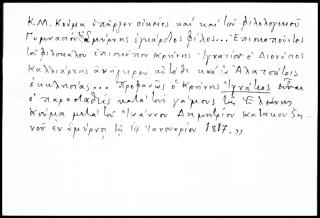 Κ.Μ. Κούμα ὑπῆρξεν οἰκεῖος καί καί τοῦ φιλολογικοῦ
Γυμνασίου Σμύρνης ἐγκάρδιος φίλος... Ἐπισκοποῦντος
τοῦ φιλοκάλου ἐπισκόπου Κρήνης Ἰγνατίου ὁ Διονύσιος
Καλλιάρχης ἀνήγειρεν αὐτόθι καί ἐν Ἀλατσάτοις
ἐκκλησίας... Προφανῶς ὁ Κρήνης Ἰγνάτιος εἶναι
ὁ παρασταθείς κατά τούς γάμους τῆς Ἑλένης
Κούμα μετά τοῦ Ἰωάννου Δημητρίου
νοῦ ἐν Σμύρνῃ τῇ 14 Ἰανουαρίου 1817.,,